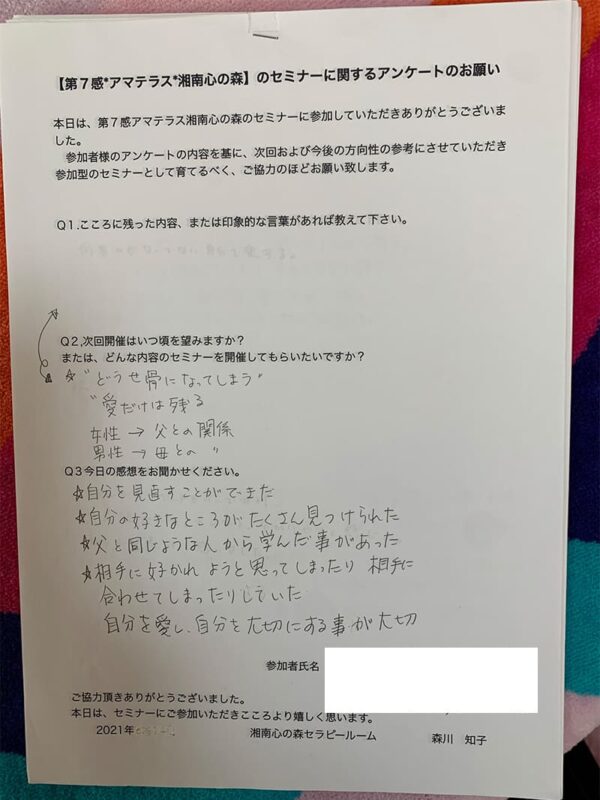 【第７感*アマテラス*湘南心の森】のセミナーに関するアンケートのお願い
本日は、第７感アマテラス湘南心の森のセミナーに参加していただきありがとうございま
した。
参加者様のアンケートの内容を基に、次回および今後の方向性の参考にさせていただき
参加型のセミナーとして育てるべく、ご協力のほどお願い致します。
Ｑ１.こころに残った内容、または印象的な言葉があれば教えて下さい。
Ｑ２,次回開催はいつ頃を望みますか？
または、どんな内容のセミナーを開催してもらいたいですか？
☆"どうせ骨になってしまう"
"愛だけは残る
女性 → 父との関係
男性 → 母との 〃
Ｑ３今日の感想をお聞かせください。
☆自分を見直すことができた
☆自分の好きなところがたくさん見つけられた
☆父と同じような人から学んだ事があった
☆相手に好かれようと思ってしまったり 相手に
合わせてしまったりしていた
自分を愛し、自分を大切にする事が大切
参加者氏名
ご協力頂きありがとうございました。
本日は、セミナーにご参加いただきこころより嬉しく思います。
2021年 湘南心の森セラピールーム 森川 知子